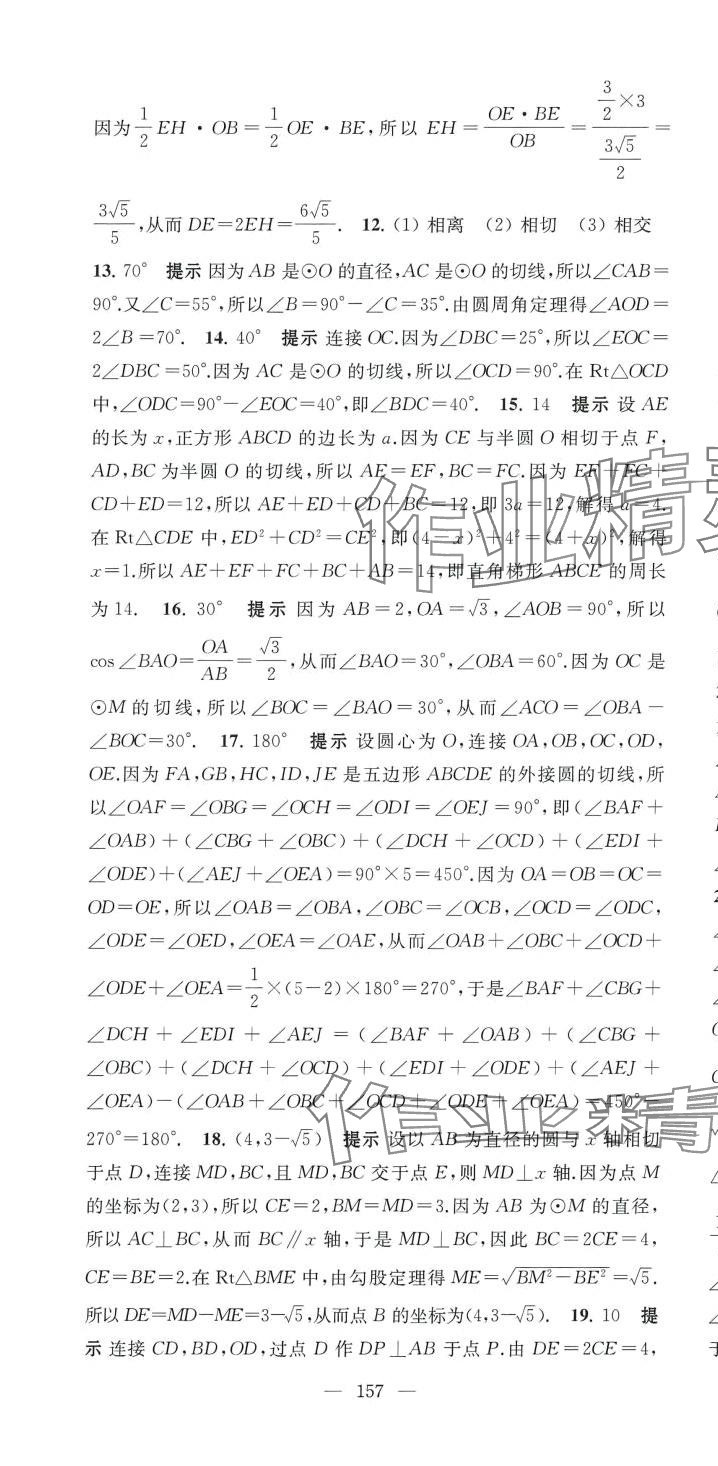 因为\frac{1}{2}EH・OB=\frac{1}{2}OE・BE,所以 EH=\frac{OE・BE}{OB}=\frac{\frac{3}{2}×3}{\frac{3\sqrt{5}}{2}}=
\frac{3\sqrt{5}}{5},从而 DE=2EH=\frac{6\sqrt{5}}{5}. 12.(1) 相离 (2) 相切 (3) 相交
13. 70° 提示 因为 AB 是⊙O 的直径,AC 是⊙O 的切线,所以∠CAB=
90°.又∠C=55°,所以∠B=90°-∠C=35°.由圆周角定理得∠AOD=
2∠B=70°. 14. 40° 提示 连接 OC.因为∠DBC=25°,所以∠EOC=
2∠DBC=50°.因为 AC 是⊙O 的切线,所以∠OCD=90°.在 Rt△OCD
中,∠ODC=90°-∠EOC=40°,即∠BDC=40°. 15. 14 提示 设 AE
的长为 x,正方形 ABCD 的边长为 a.因为 CE 与半圆 O 相切于点 F,
AD,BC 为半圆 O 的切线,所以 AE=EF,BC=FC.因为 EF+FC+
CD+ED=12,所以 AE+ED+CD+BC=12,即 3a=12,解得 a=4.
在 Rt△CDE 中,ED²+CD²=CE²,即(4-x)²+4²=(4+x)²,解得
x=1.所以 AE+EF+FC+BC+AB=14,即直角梯形 ABCE 的周长
为 14. 16. 30° 提示 因为 AB=2,OA=\sqrt{3},∠AOB=90°,所以
cos∠BAO=\frac{OA}{AB}=\frac{\sqrt{3}}{2},从而∠BAO=30°,∠OBA=60°.因为 OC 是
⊙M 的切线,所以∠BOC=∠BAO=30°,从而∠ACO=∠OBA-
∠BOC=30°. 17. 180° 提示 设圆心为 O,连接 OA,OB,OC,OD,
OE.因为 FA,GB,HC,ID,JE 是五边形 ABCDE 的外接圆的切线,所
以∠OAF=∠OBG=∠OCH=∠ODI=∠OEJ=90°,即(∠BAF+
∠OAB)+(∠CBG+∠OBC)+(∠DCH+∠OCD)+(∠EDI+
∠ODE)+(∠AEJ+∠OEA)=90°×5=450°.因为 OA=OB=OC=
OD=OE,所以∠OAB=∠OBA,∠OBC=∠OCB,∠OCD=∠ODC,
∠ODE=∠OED,∠OEA=∠OAE,从而∠OAB+∠OBC+∠OCD+
∠ODE+∠OEA=\frac{1}{2}×(5-2)×180°=270°,于是∠BAF+∠CBG+
∠DCH+∠EDI+∠AEJ=(∠BAF+∠OAB)+(∠CBG+
∠OBC)+(∠DCH+∠OCD)+(∠EDI+∠ODE)+(∠AEJ+
∠OEA)-(∠OAB+∠OBC+∠OCD+∠ODE+∠OEA)=450°-
270°=180°. 18. (4,3-\sqrt{5}) 提示 设以 AB 为直径的圆与 x 轴相切
于点 D,连接 MD,BC,且 MD,BC 交于点 E,则 MD⊥x 轴.因为点 M
的坐标为(2,3),所以 CE=2,BM=MD=3.因为 AB 为⊙M 的直径,
所以 AC⊥BC,从而 BC∥x 轴,于是 MD⊥BC,因此 BC=2CE=4,
CE=BE=2.在 Rt△BME 中,由勾股定理得 ME=\sqrt{BM²-BE²}=\sqrt{5}.
所以 DE=MD-ME=3-\sqrt{5},从而点 B 的坐标为(4,3-\sqrt{5}). 19. 10 提
示 连接 CD,BD,OD,过点 D 作 DP⊥AB 于点 P.由 DE=2CE=4,
— 157 —
作业精
作业精